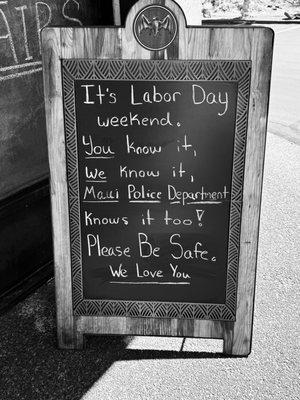 AIRS
It's Labor Day
weekend.
You know it,
We know it,
Maui Police Department
Knows it too!
Please Be Safe.
We Love You